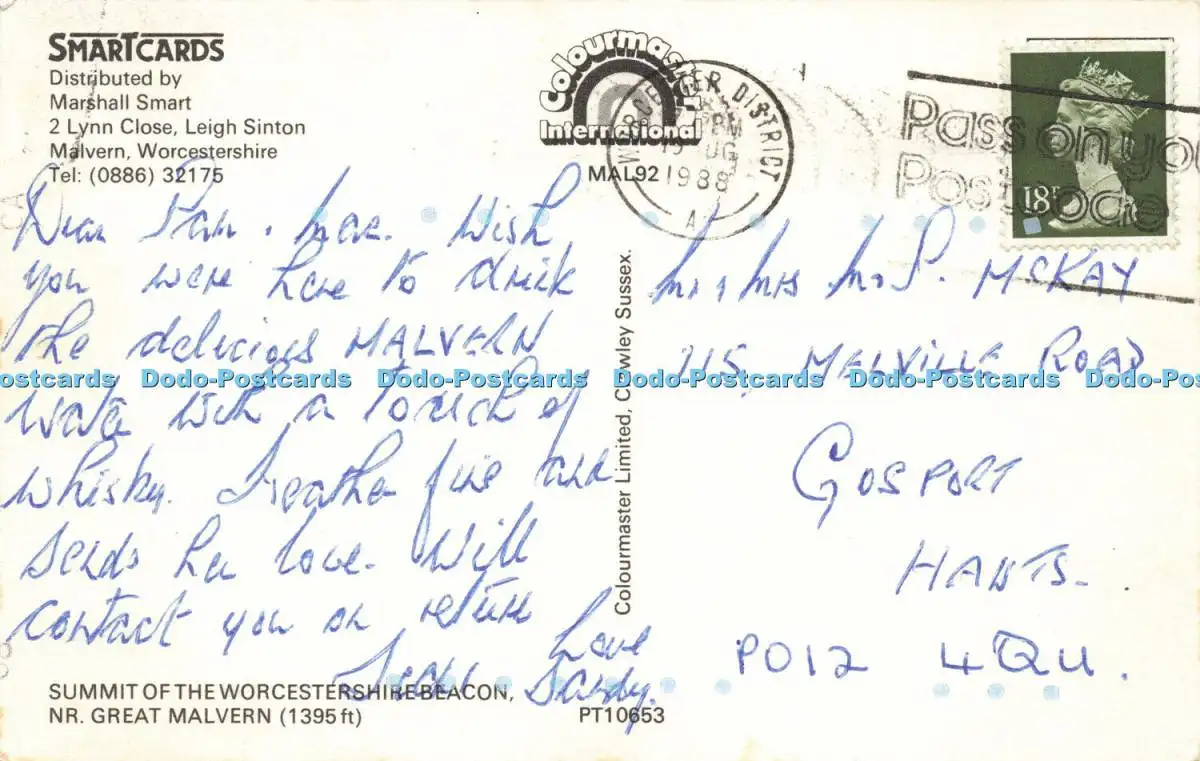 SMARTCARDS
Distributed by
Marshall Smart
2 Lynn Close, Leigh Sinton
Malvern, Worcestershire
Tel: (0886) 32175
Colourmaster
International
MAL92
DISTRICT
1988
Pass on you
Postcode
18P
Dear Pam. Wish
you were here to drink
the delicious MALVERN
Water with a touch of
whisky. fine and
sends her love. Will
contact you on return
Love
Sandy.
Mr & Mrs P. McKAY
115, MELVILLE ROAD
GOSPORT
HANTS.
PO12 4QU.
Colourmaster Limited, Crawley Sussex.
Dodo-Postcards Dodo-Postcards Dodo-Postcards Dodo-Postcards Dodo-Postcards Dodo-Postcards
SUMMIT OF THE WORCESTERSHIRE BEACON,
NR. GREAT MALVERN (1395 ft)
PT10653